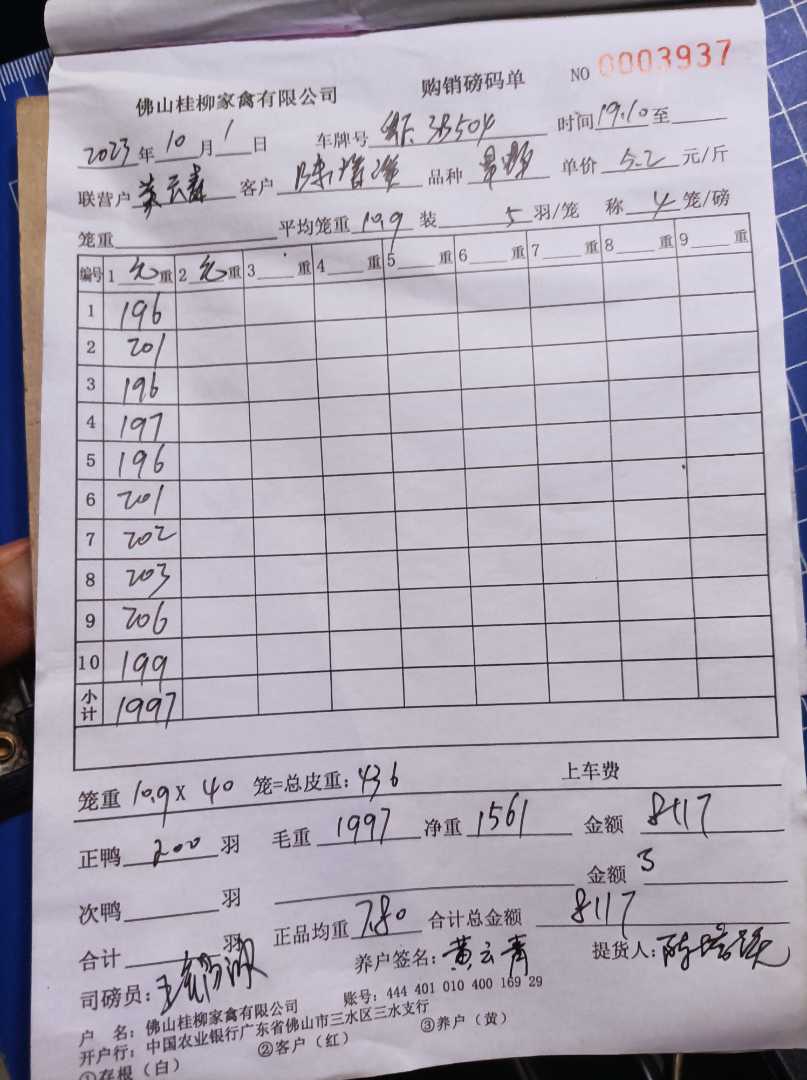 佛山桂柳家禽有限公司 购销磅码单 NO 0003937
2023 年 10 月 1 日 车牌号 35504 时间 19:10 至
联营户 客户 陈 品种 单价 5.2 元/斤
笼重 平均笼重 10.9 装 5 羽/笼 称 4 笼/磅
编号 1 元 重 2 元 重 3 重 4 重 5 重 6 重 7 重 8 重 9 重
1 196
2 201
3 196
4 197
5 196
6 201
7 202
8 203
9 206
10 199
小计 1997
笼重 10.9 x 40 笼=总皮重: 436 上车费
正鸭 200 羽 毛重 1997 净重 1561 金额 8117
次鸭 羽 金额 3
合计 羽 正品均重 7.80 合计总金额 8117
司磅员: 养户签名: 黄云青 提货人:
户 名: 佛山桂柳家禽有限公司 账号: 444 401 010 400 169 29
开户行: 中国农业银行广东省佛山市三水区三水支行
①存根(白) ②客户(红) ③养户(黄)